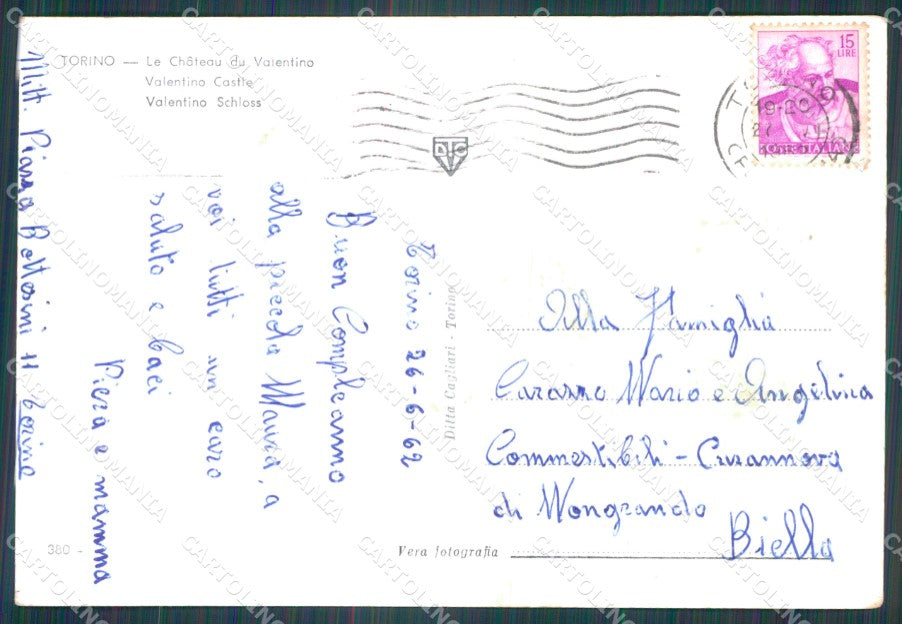 TORINO — Le Château du Valentino
Valentino Castle
Valentino Schloss
15
LIRE
POSTE ITALIANE
19-20
27
DTC
Torino 26-6-62
Buon Compleanno
alla piccola Maura, a
voi tutti un caro
saluto e baci
Piera e mamma
Mitt. Piazza Bottesini 11 Torino
Ditta Cagliari - Torino
Alla Famiglia
Mario e Angelina
Commestibili - Curannova
di Mongrando
Biella
380 -
Vera fotografia
CARTOLINOMANIA